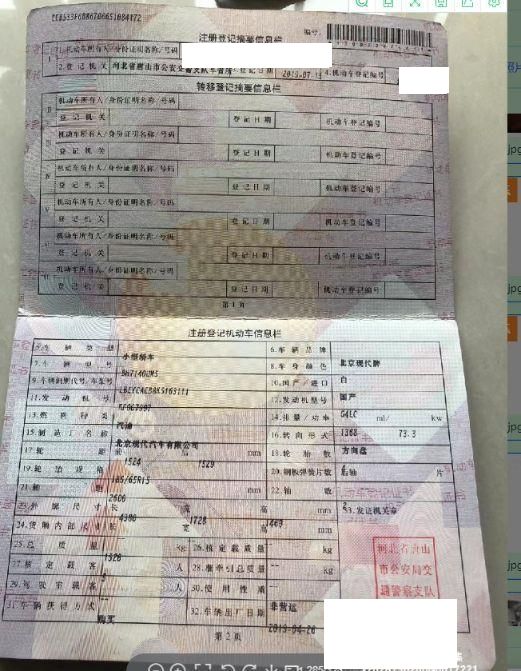 注册登记摘要信息栏
编号:
1.机动车所有人/身份证明名称/号码
2.登记机关 河北省唐山市公安交通警察支队车管所 3.登记日期 4.机动车登记编号
转移登记摘要信息栏
机动车所有人/身份证明名称/号码
登记机关 登记日期 机动车登记编号
机动车所有人/身份证明名称/号码
登记机关 登记日期 机动车登记编号
机动车所有人/身份证明名称/号码
登记机关 登记日期 机动车登记编号
机动车所有人/身份证明名称/号码
登记机关 登记日期 机动车登记编号
机动车所有人/身份证明名称/号码
登记机关 登记日期 机动车登记编号
机动车所有人/身份证明名称/号码
登记机关 登记日期 机动车登记编号
第1页
注册登记机动车信息栏
5.车辆类型 小型轿车 6.车辆品牌 北京现代牌
7.车辆型号 8.车身颜色 白
9.车辆识别代号/车架号 10.国产/进口 国产
11.发动机号 12.发动机型号 G4LC
13.燃料种类 汽油 14.排量/功率 1368 ml/ 73.3 kw
15.制造厂名称 北京现代汽车有限公司 16.转向形式 方向盘
17.轮距 1524 1529 mm 18.轮胎数
19.轮胎规格 185/65R15 20.钢板弹簧片数 后轴 片
21.轴距 2600 mm 22.轴数
23.外廓尺寸 长 4380 宽 1728 高 mm 33.发证机关章
24.货厢内部尺寸 长 宽 高 mm
25.总质量 kg 26.核定载质量 -- kg
27.核定载客 5 人 28.准牵引总质量 -- kg
29.驾驶室载客 -- 人 30.使用性质 非营运
31.车辆获得方式 购买 32.车辆出厂日期 2019-04-26
河北省唐山
市公安局交
通警察支队
第2页